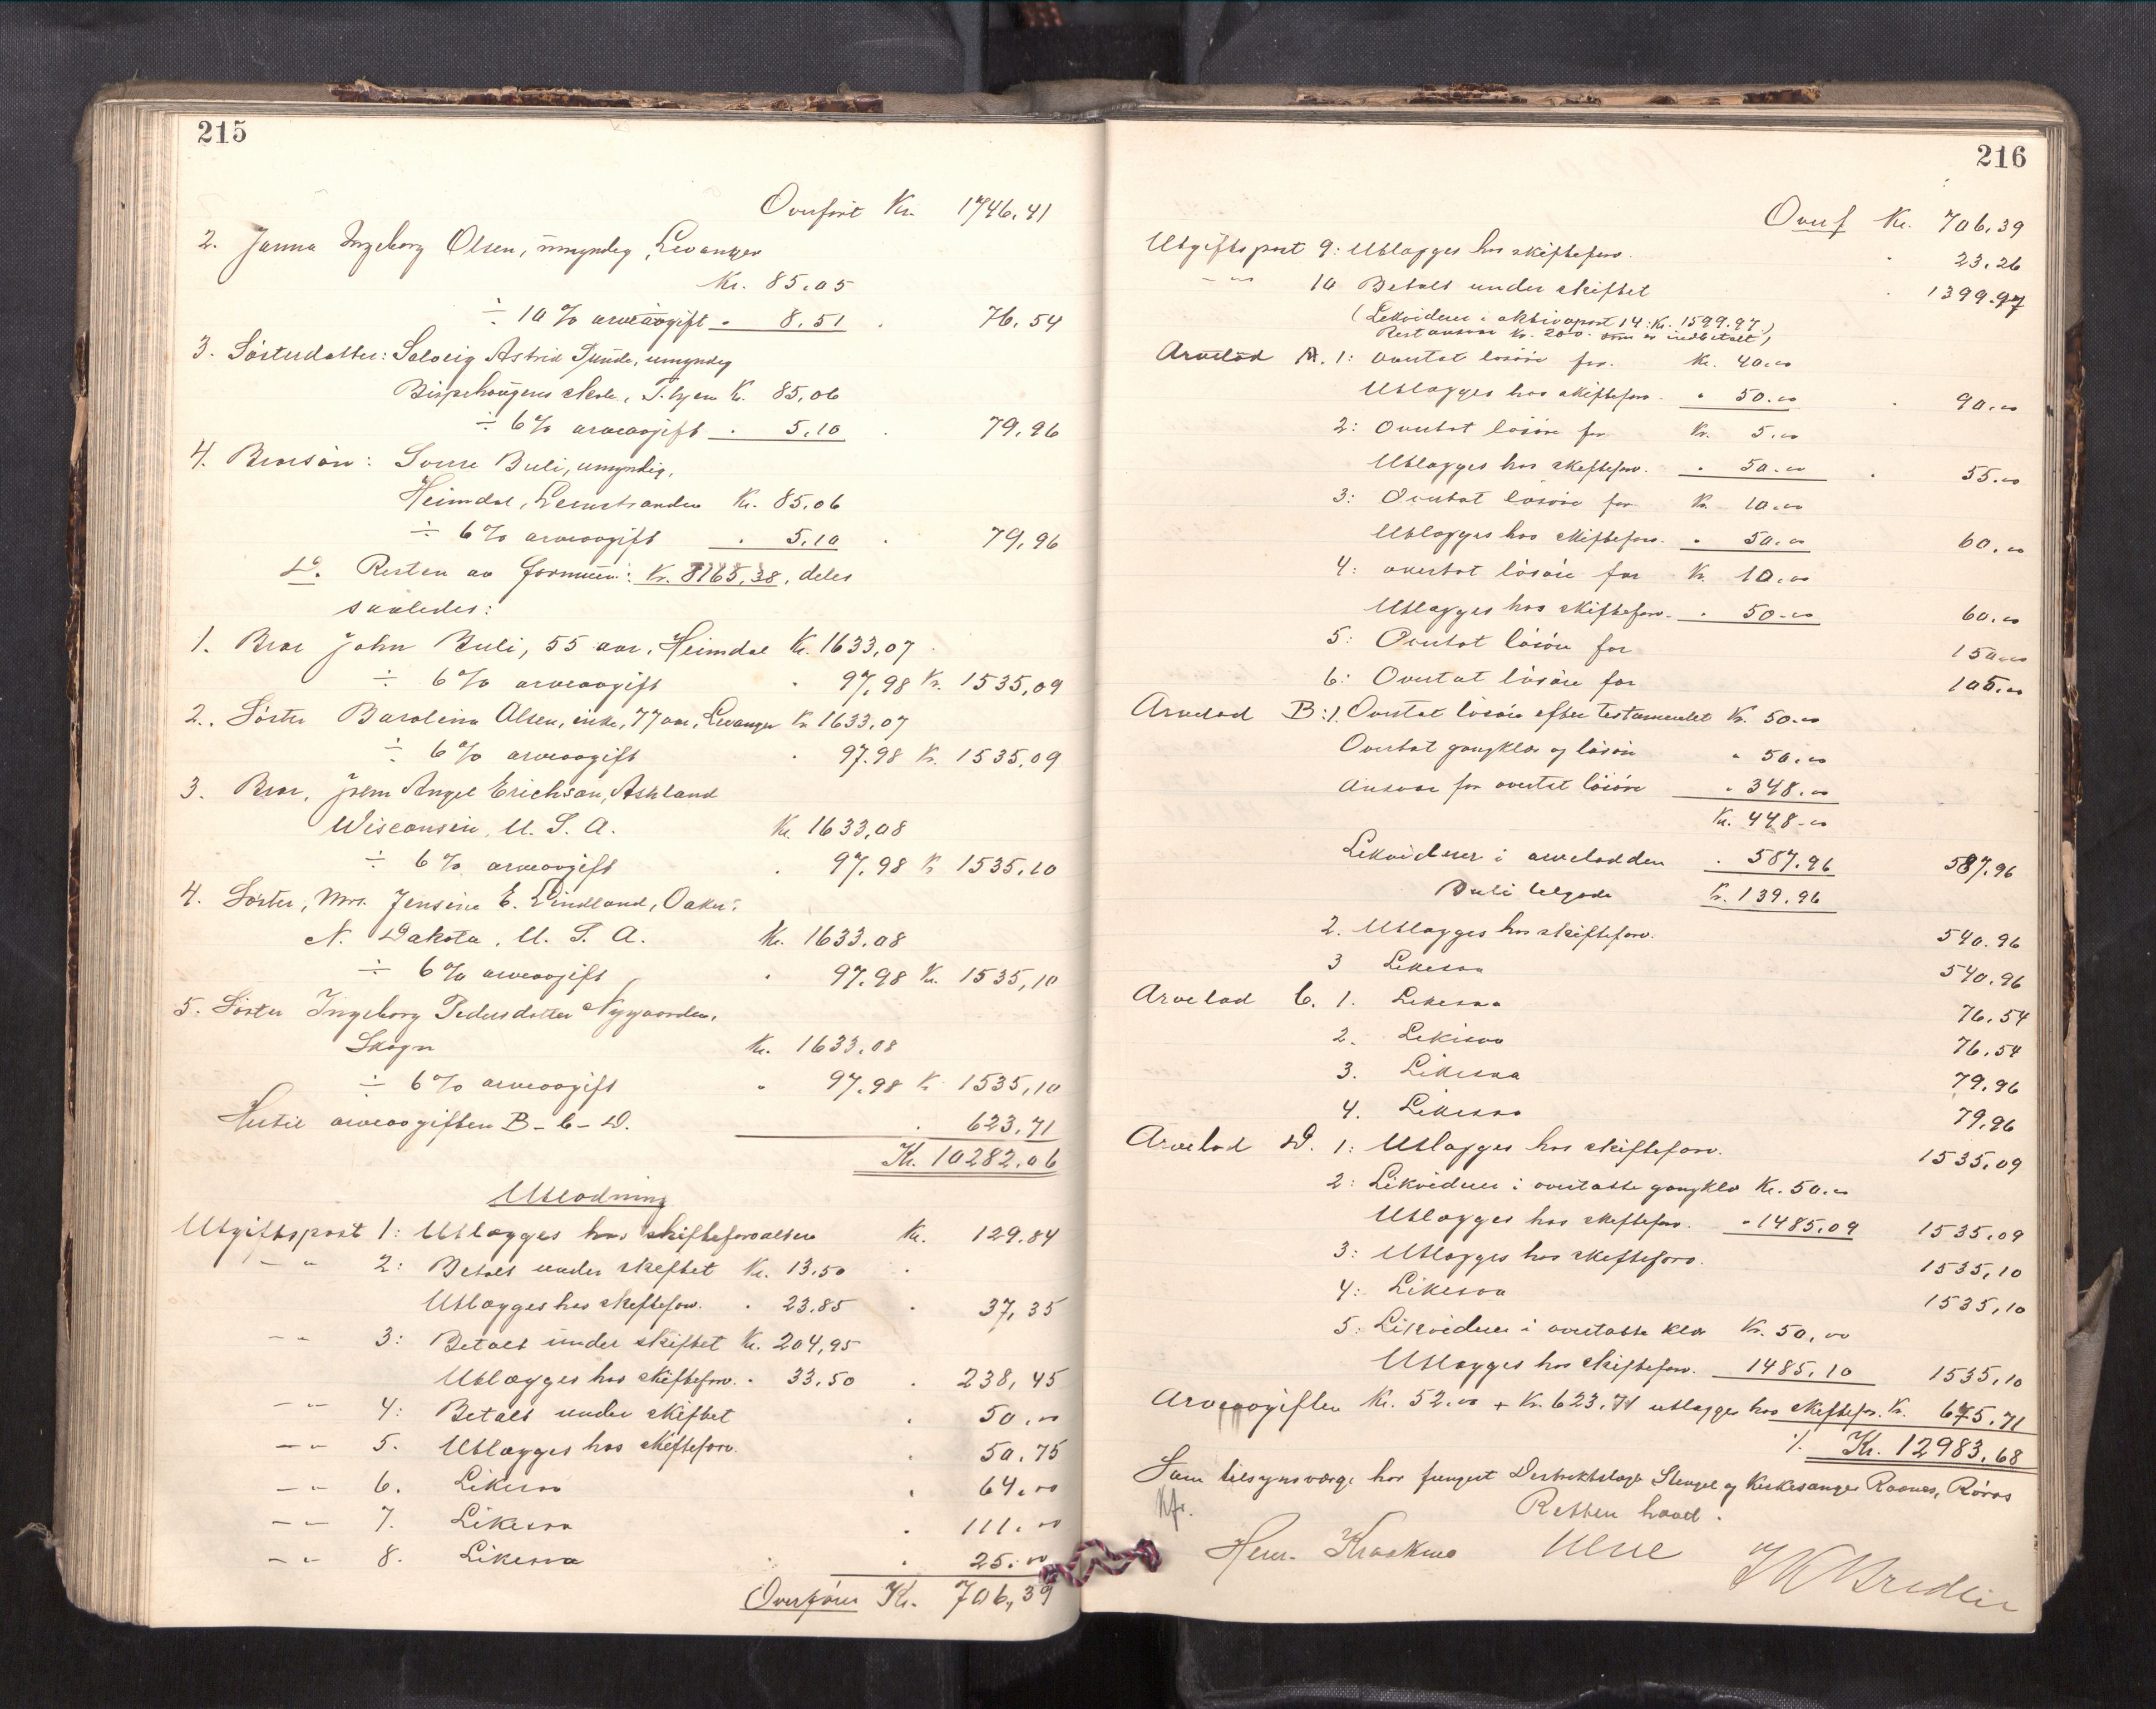 215
Overført Kr. 1746,41
2. Janna Ingeborg Olsen, umyndig, Levanger
Kr. 85,05
÷ 10 % arveavgift " 8,51 . 76,54
3. Søsterdatter: Solveig Astrid Sunde, umyndig
Bispehaugens skole, T.hjem Kr. 85,06
÷ 6 % arveavgift . 5,10 . 79,96
4. Brorsøn: Sverre Buli, umyndig,
Heimdal, Leinstranden Kr. 85,06
÷ 6 % arveavgift . 5,10 . 79,96
D. Resten av formuen: Kr. 8165,38, deles
saaledes:
1. Bror John Buli, 55 aar, Heimdal Kr. 1633,07
÷ 6 % arveavgift . 97,98 Kr. 1535,09
2. Søster Barolina Olsen, enke, 77 aar, Levanger Kr. 1633,07
÷ 6 % arveavgift . 97.98 Kr. 1535,09
3. Bror, John Angel Erichson, Ashland
Wisconsin, U. S. A. Kr. 1633,08
÷ 6 % arveavgift . 97,98 Kr. 1535,10
4. Søster, Mrs. Jensine E. Lindland, Oaku:
N. Dakota, U. S. A. Kr. 1633.08
÷ 6 % arveavgift . 97.98 Kr. 1535,10
5. Søster Ingeborg Pedersdatter Nygaarden,
Skogn Kr. 1633,08
÷ 6 % arveavgift " 97.98 Kr. 1535,10
Hertil arveavgiften B - C - D. . 623,71
Kr. 10282.06
Utlodning
Utgiftspost 1: Utlægges hos skifteforvalteren Kr. 129.84
- " 2: Betalt under skiftet Kr. 13.50 .
Utlægges hos skifteforv. . 23.85 . 37,35
- " 3: Betalt under skiftet Kr. 204,95
Utlægges hos skifteforv. . 33.50 . 238,45
- " 4: Betalt under skiftet . 50,00
- " 5. Utlægges hos skifteforv. . 50,75
- " 6. Likesaa . 64,00
- " 7. Likesaa . 111,00
- " 8. Likesaa . 25,00
Overføres Kr. 706,39
216
Overf Kr. 706,39
Utgiftspost 9: Utlægges hos skifteforv. . 23.26
- " 10 Betalt under skiftet . 1399.97
(Likviderer i aktivapost 14: Kr. 1599.97,
Rest ansvar Kr. 200. som er indbetalt)
Arvelod A. 1: overtat løsøre for. Kr. 40,00
Utlægges hos skifteforv. . 50.00 . 90,00
2: Overtat løsøre for Kr. 5,00
Utlægges hos skifteforv. . 50.00 . 55.00
3: Overtat løsøre for Kr. 10,00
Utlægges hos skifteforv. . 50,00 60,00
4: overtat løsøre for Kr. 10,00
Utlægges hos skifteforv. . 50.00 60,00
5: Overtat løsøre for 150,00
6: Overtat løsøre for 105,00
Arvelod B: 1. Overtat løsøre efter testamentet Kr. 50.00
Overtat gangklær og løsøre " 50,00
Ansvar for overtat løsøre " 348,00
Kr. 448.00
Likviderer i arvelodden . 587.96 587.96
Buli tilgode Kr. 139.96
2. Utlægges hos skifteforv. 540.96
3 Likesaa 540.96
Arvelod C. 1. Likesaa 76.54
2. Likesaa 76.54
3. Likesaa 79.96
4. Likesaa 79.96
Arvelod D. 1: Utlægges hos skifteforv. 1535,09
2: Likviderer i overtatte gangklær Kr. 50.00
Utlægges hos skifteforv. " 1485.09 1535,09
3: Utlægges hos skifteforv. 1535,10
4: Likesaa 1535,10
5: Likviderer i overtatte klær Kr. 50,00
Utlægges hos skifteforv. 1485,10 1535,10
Arveavgiften Kr. 52.00 + Kr. 623.71 utlægges hos skifteforv. Kr. 675.71
Kr. 12983.68
Som tilsynsværge har fungert Distriktslæge Stengel og Kirkesanger Raanes, Røros
Kfr. Retten hævet.